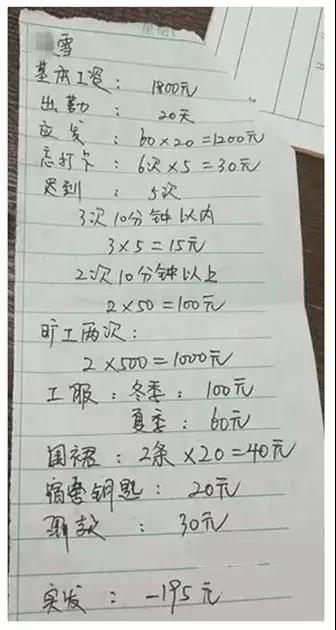 雪
基本工资：1800元
出勤：20天
应发：60×20=1200元
忘打卡：6次×5=30元
迟到：5次
3次10分钟以内
3×5=15元
2次10分钟以上
2×50=100元
旷工两次：
2×500=1000元
工服：冬季：100元
夏季：60元
围裙：2条×20=40元
宿舍钥匙：20元
罚款：30元
实发：-195元